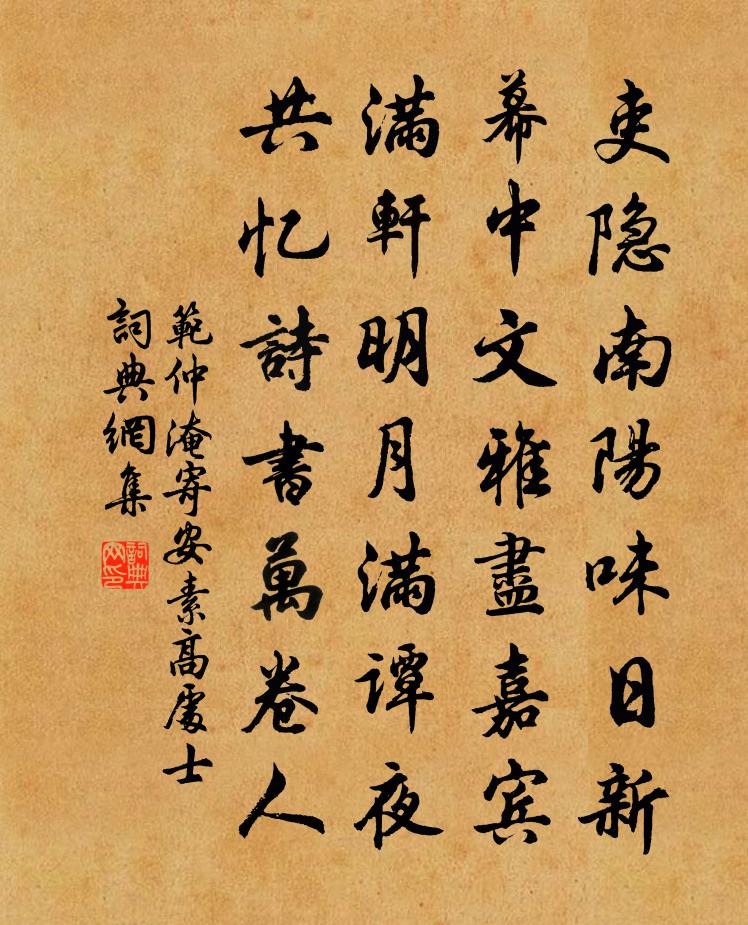 吏隐南陽味日新
幕中文雅盡嘉宾
满軒明月满谭夜
共忆詩書萬卷人
範仲淹寄安素高處士
詞典網集
詞典网印